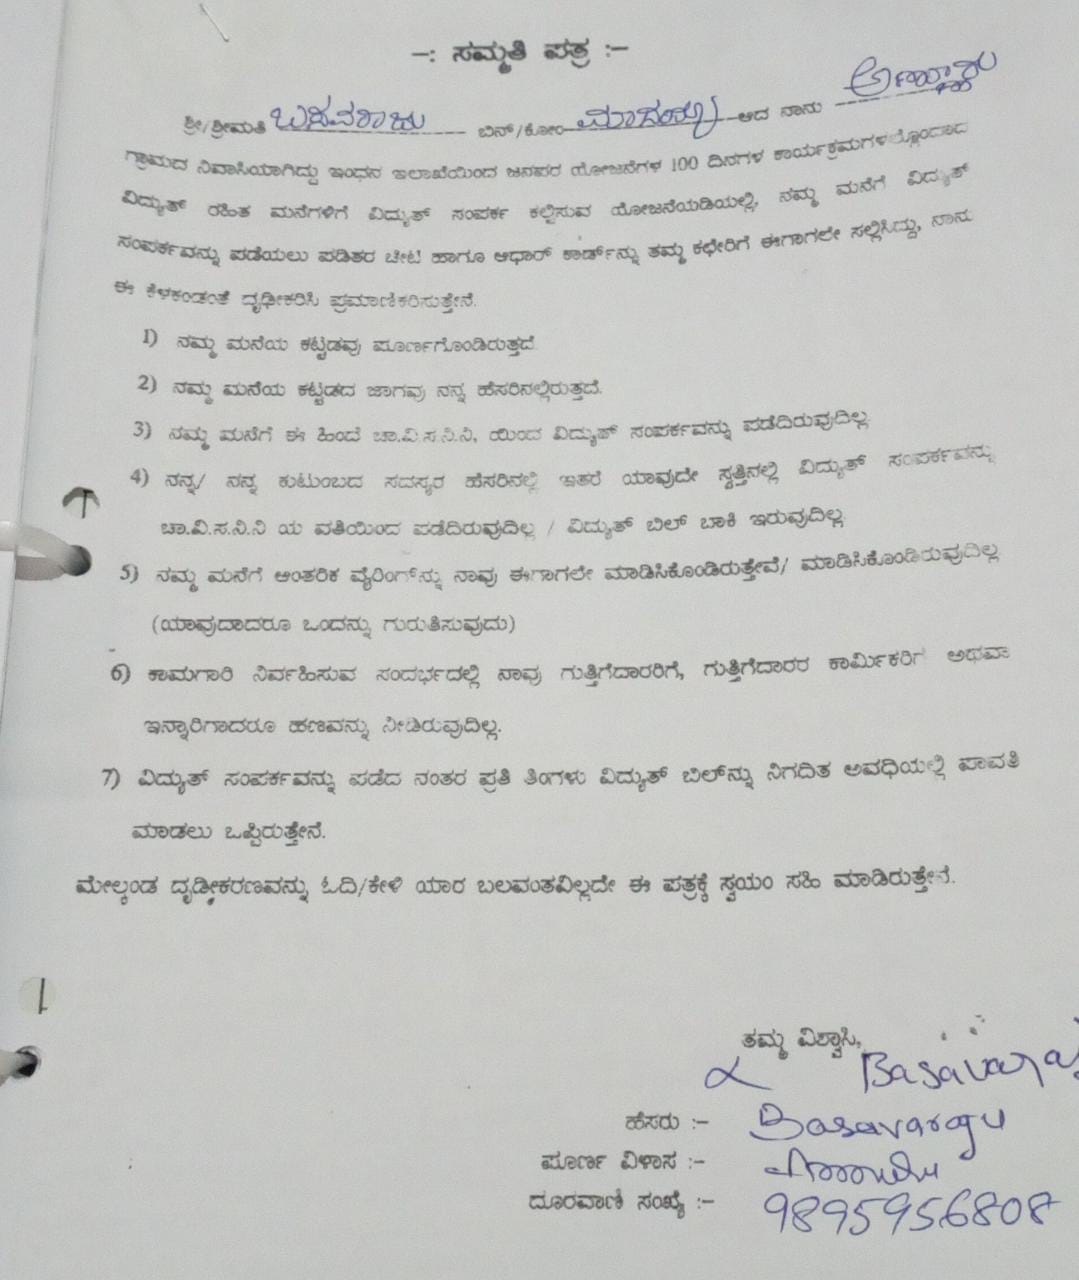 -: ಸಮ್ಮತಿ ಪತ್ರ :-
ಶ್ರೀ/ಶ್ರೀಮತಿ ಬಸವರಾಜು ಬಿನ್/ಕೋಂ ಮಾದಯ್ಯ ಆದ ನಾನು
ಗ್ರಾಮದ ನಿವಾಸಿಯಾಗಿದ್ದು ಇಂಧನ ಇಲಾಖೆಯಿಂದ ಜನಪರ ಯೋಜನೆಗಳ 100 ದಿನಗಳ ಕಾರ್ಯಕ್ರಮಗಳಲ್ಲೊಂದಾದ
ವಿದ್ಯುತ್ ರಹಿತ ಮನೆಗಳಿಗೆ ವಿದ್ಯುತ್ ಸಂಪರ್ಕ ಕಲ್ಪಿಸುವ ಯೋಜನೆಯಡಿಯಲ್ಲಿ, ನಮ್ಮ ಮನೆಗೆ ವಿದ್ಯುತ್
ಸಂಪರ್ಕವನ್ನು ಪಡೆಯಲು ಪಡಿತರ ಚೀಟಿ ಹಾಗೂ ಆಧಾರ್ ಕಾರ್ಡ್‌ನ್ನು ತಮ್ಮ ಕಛೇರಿಗೆ ಈಗಾಗಲೇ ಸಲ್ಲಿಸಿದ್ದು, ನಾನು
ಈ ಕೆಳಕಂಡಂತೆ ದೃಢೀಕರಿಸಿ ಪ್ರಮಾಣಿಕರಿಸುತ್ತೇನೆ.
1) ನಮ್ಮ ಮನೆಯ ಕಟ್ಟಡವು ಪೂರ್ಣಗೊಂಡಿರುತ್ತದೆ.
2) ನಮ್ಮ ಮನೆಯ ಕಟ್ಟಡದ ಜಾಗವು ನನ್ನ ಹೆಸರಿನಲ್ಲಿರುತ್ತದೆ.
3) ನಮ್ಮ ಮನೆಗೆ ಈ ಹಿಂದೆ ಚಾ.ವಿ.ಸ.ನಿ.ನಿ, ಯಿಂದ ವಿದ್ಯುತ್ ಸಂಪರ್ಕವನ್ನು ಪಡೆದಿರುವುದಿಲ್ಲ.
4) ನನ್ನ/ ನನ್ನ ಕುಟುಂಬದ ಸದಸ್ಯರ ಹೆಸರಿನಲ್ಲಿ ಇತರೆ ಯಾವುದೇ ಸ್ವತ್ತಿನಲ್ಲಿ ವಿದ್ಯುತ್ ಸಂಪರ್ಕವನ್ನು
ಚಾ.ವಿ.ಸ.ನಿ.ನಿ ಯ ವತಿಯಿಂದ ಪಡೆದಿರುವುದಿಲ್ಲ / ವಿದ್ಯುತ್ ಬಿಲ್ ಬಾಕಿ ಇರುವುದಿಲ್ಲ.
5) ನಮ್ಮ ಮನೆಗೆ ಆಂತರಿಕ ವೈರಿಂಗ್‌ನ್ನು ನಾವು ಈಗಾಗಲೇ ಮಾಡಿಸಿಕೊಂಡಿರುತ್ತೇವೆ/ ಮಾಡಿಸಿಕೊಂಡಿರುವುದಿಲ್ಲ
(ಯಾವುದಾದರೂ ಒಂದನ್ನು ಗುರುತಿಸುವುದು)
6) ಕಾಮಗಾರಿ ನಿರ್ವಹಿಸುವ ಸಂದರ್ಭದಲ್ಲಿ ನಾವು ಗುತ್ತಿಗೆದಾರರಿಗೆ, ಗುತ್ತಿಗೆದಾರರ ಕಾರ್ಮಿಕರಿಗೆ ಅಥವಾ
ಇನ್ನಾರಿಗಾದರೂ ಹಣವನ್ನು ನೀಡಿರುವುದಿಲ್ಲ.
7) ವಿದ್ಯುತ್ ಸಂಪರ್ಕವನ್ನು ಪಡೆದ ನಂತರ ಪ್ರತಿ ತಿಂಗಳು ವಿದ್ಯುತ್ ಬಿಲ್‌ನ್ನು ನಿಗದಿತ ಅವಧಿಯಲ್ಲಿ ಪಾವತಿ
ಮಾಡಲು ಒಪ್ಪಿರುತ್ತೇನೆ.
ಮೇಲ್ಕಂಡ ದೃಢೀಕರಣವನ್ನು ಓದಿ/ಕೇಳಿ ಯಾರ ಬಲವಂತವಿಲ್ಲದೇ ಈ ಪತ್ರಕ್ಕೆ ಸ್ವಯಂ ಸಹಿ ಮಾಡಿರುತ್ತೇನೆ.
ತಮ್ಮ ವಿಶ್ವಾಸಿ,
Basavaraj
ಹೆಸರು :- Basavaraju
ಪೂರ್ಣ ವಿಳಾಸ :-
ದೂರವಾಣಿ ಸಂಖ್ಯೆ :- 9895956808